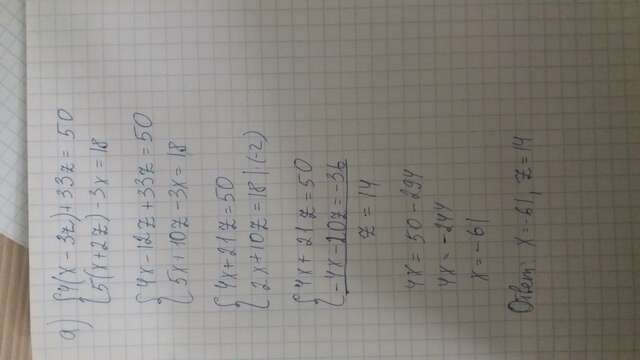 a) {4(x-3z)+33z=50
{5(x+2z)-3x=18
{4x-12z+33z=50
{5x+10z-3x=18
{4x+21z=50
{2x+10z=18|(-2)
{4x+21z=50
{-4x-20z=-36
z=14
4x=50-294
4x=-244
x=-61
Ответ: x=-61, z=14